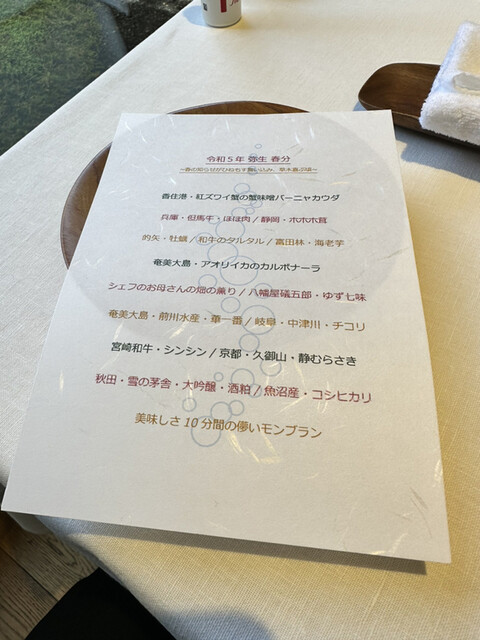 令和５年 弥生 春分
香住港・紅ズワイ蟹の蟹味噌バーニャカウダ
兵庫・但馬牛・ほほ肉 / 静岡・ホホホ茸
的矢・牡蠣 / 和牛のタルタル / 富田林・海老芋
奄美大島・アオリイカのカルボナーラ
シェフのお母さんの畑の薫り / 八幡屋礒五郎・ゆず七味
奄美大島・前川水産・華一番 / 岐阜・中津川・チコリ
宮崎和牛・シンシン / 京都・久御山・静むらさき
秋田・雪の茅舎・大吟醸・酒粕 / 魚沼産・コシヒカリ
美味しさ 10 分間の儚いモンブラン